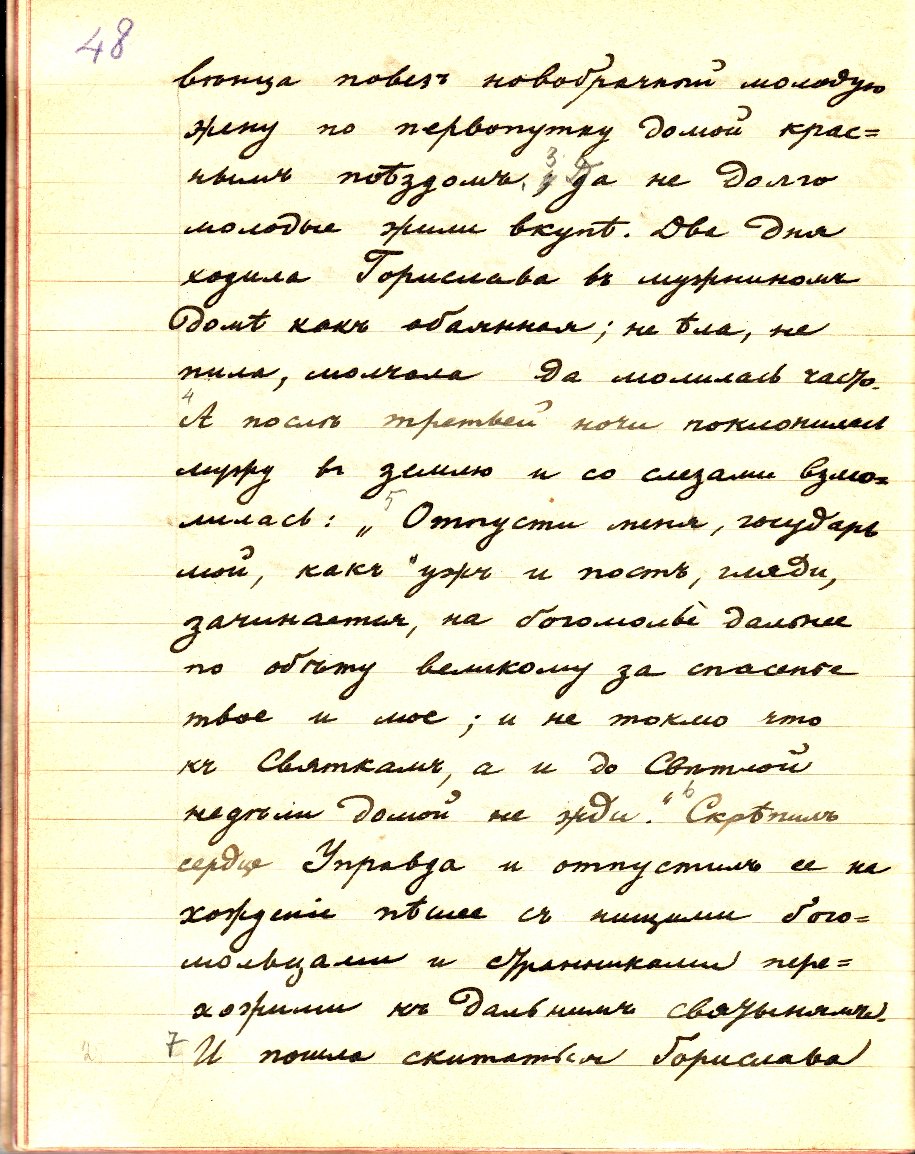 48
вѣнца повезъ новобрачный молодую
жену по первопутку домой крас=
нымъ поѣздомъ. 3 Да не долго
молодые жили вкупѣ. Два дня
ходила Горислава въ мужниномъ
домѣ какъ обаянная; не ѣла, не
пила, молчала да молилась часто.
4 А послѣ третьей ночи поклонилась
мужу въ землю и со слезами взмо=
лилась: 5 „Отпусти меня, государь
мой, какъ ужъ и постъ, гляди,
зачинается, на богомолье дальнее
по обѣту великому за спасенье
твое и мое; и не токмо что
къ Святкамъ, а и до Свѣтлой
недѣли домой не жди.“ 6 Скрѣпилъ
сердце Управда и отпустилъ ее на
хожденіе пѣшее съ нищими бого=
мольцами и странниками пере=
хожими къ дальнимъ святынямъ.
7 И пошла скитаться Горислава